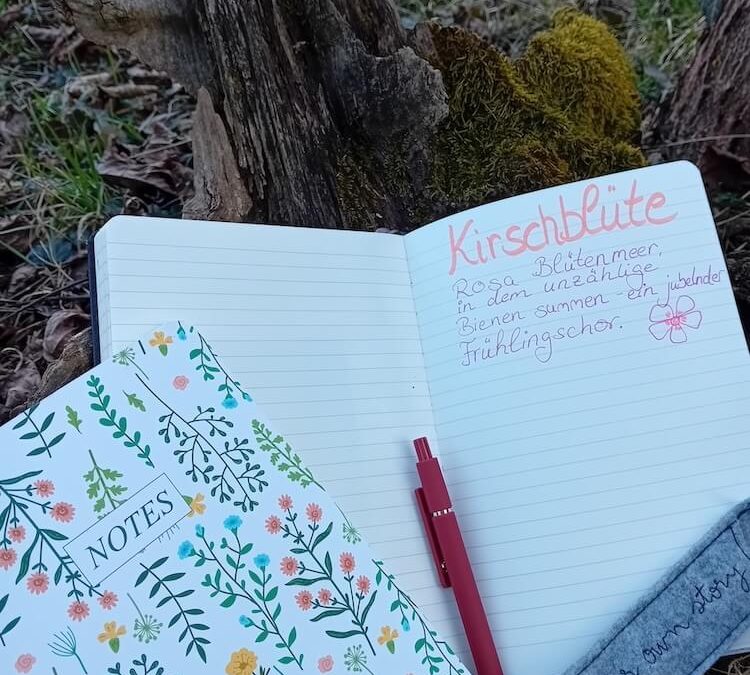 Kirschblüte
Rosa Blütenmeer,
in dem unzählige
Bienen summen - ein jubelnder
Frühlingschor.
NOTES
own story